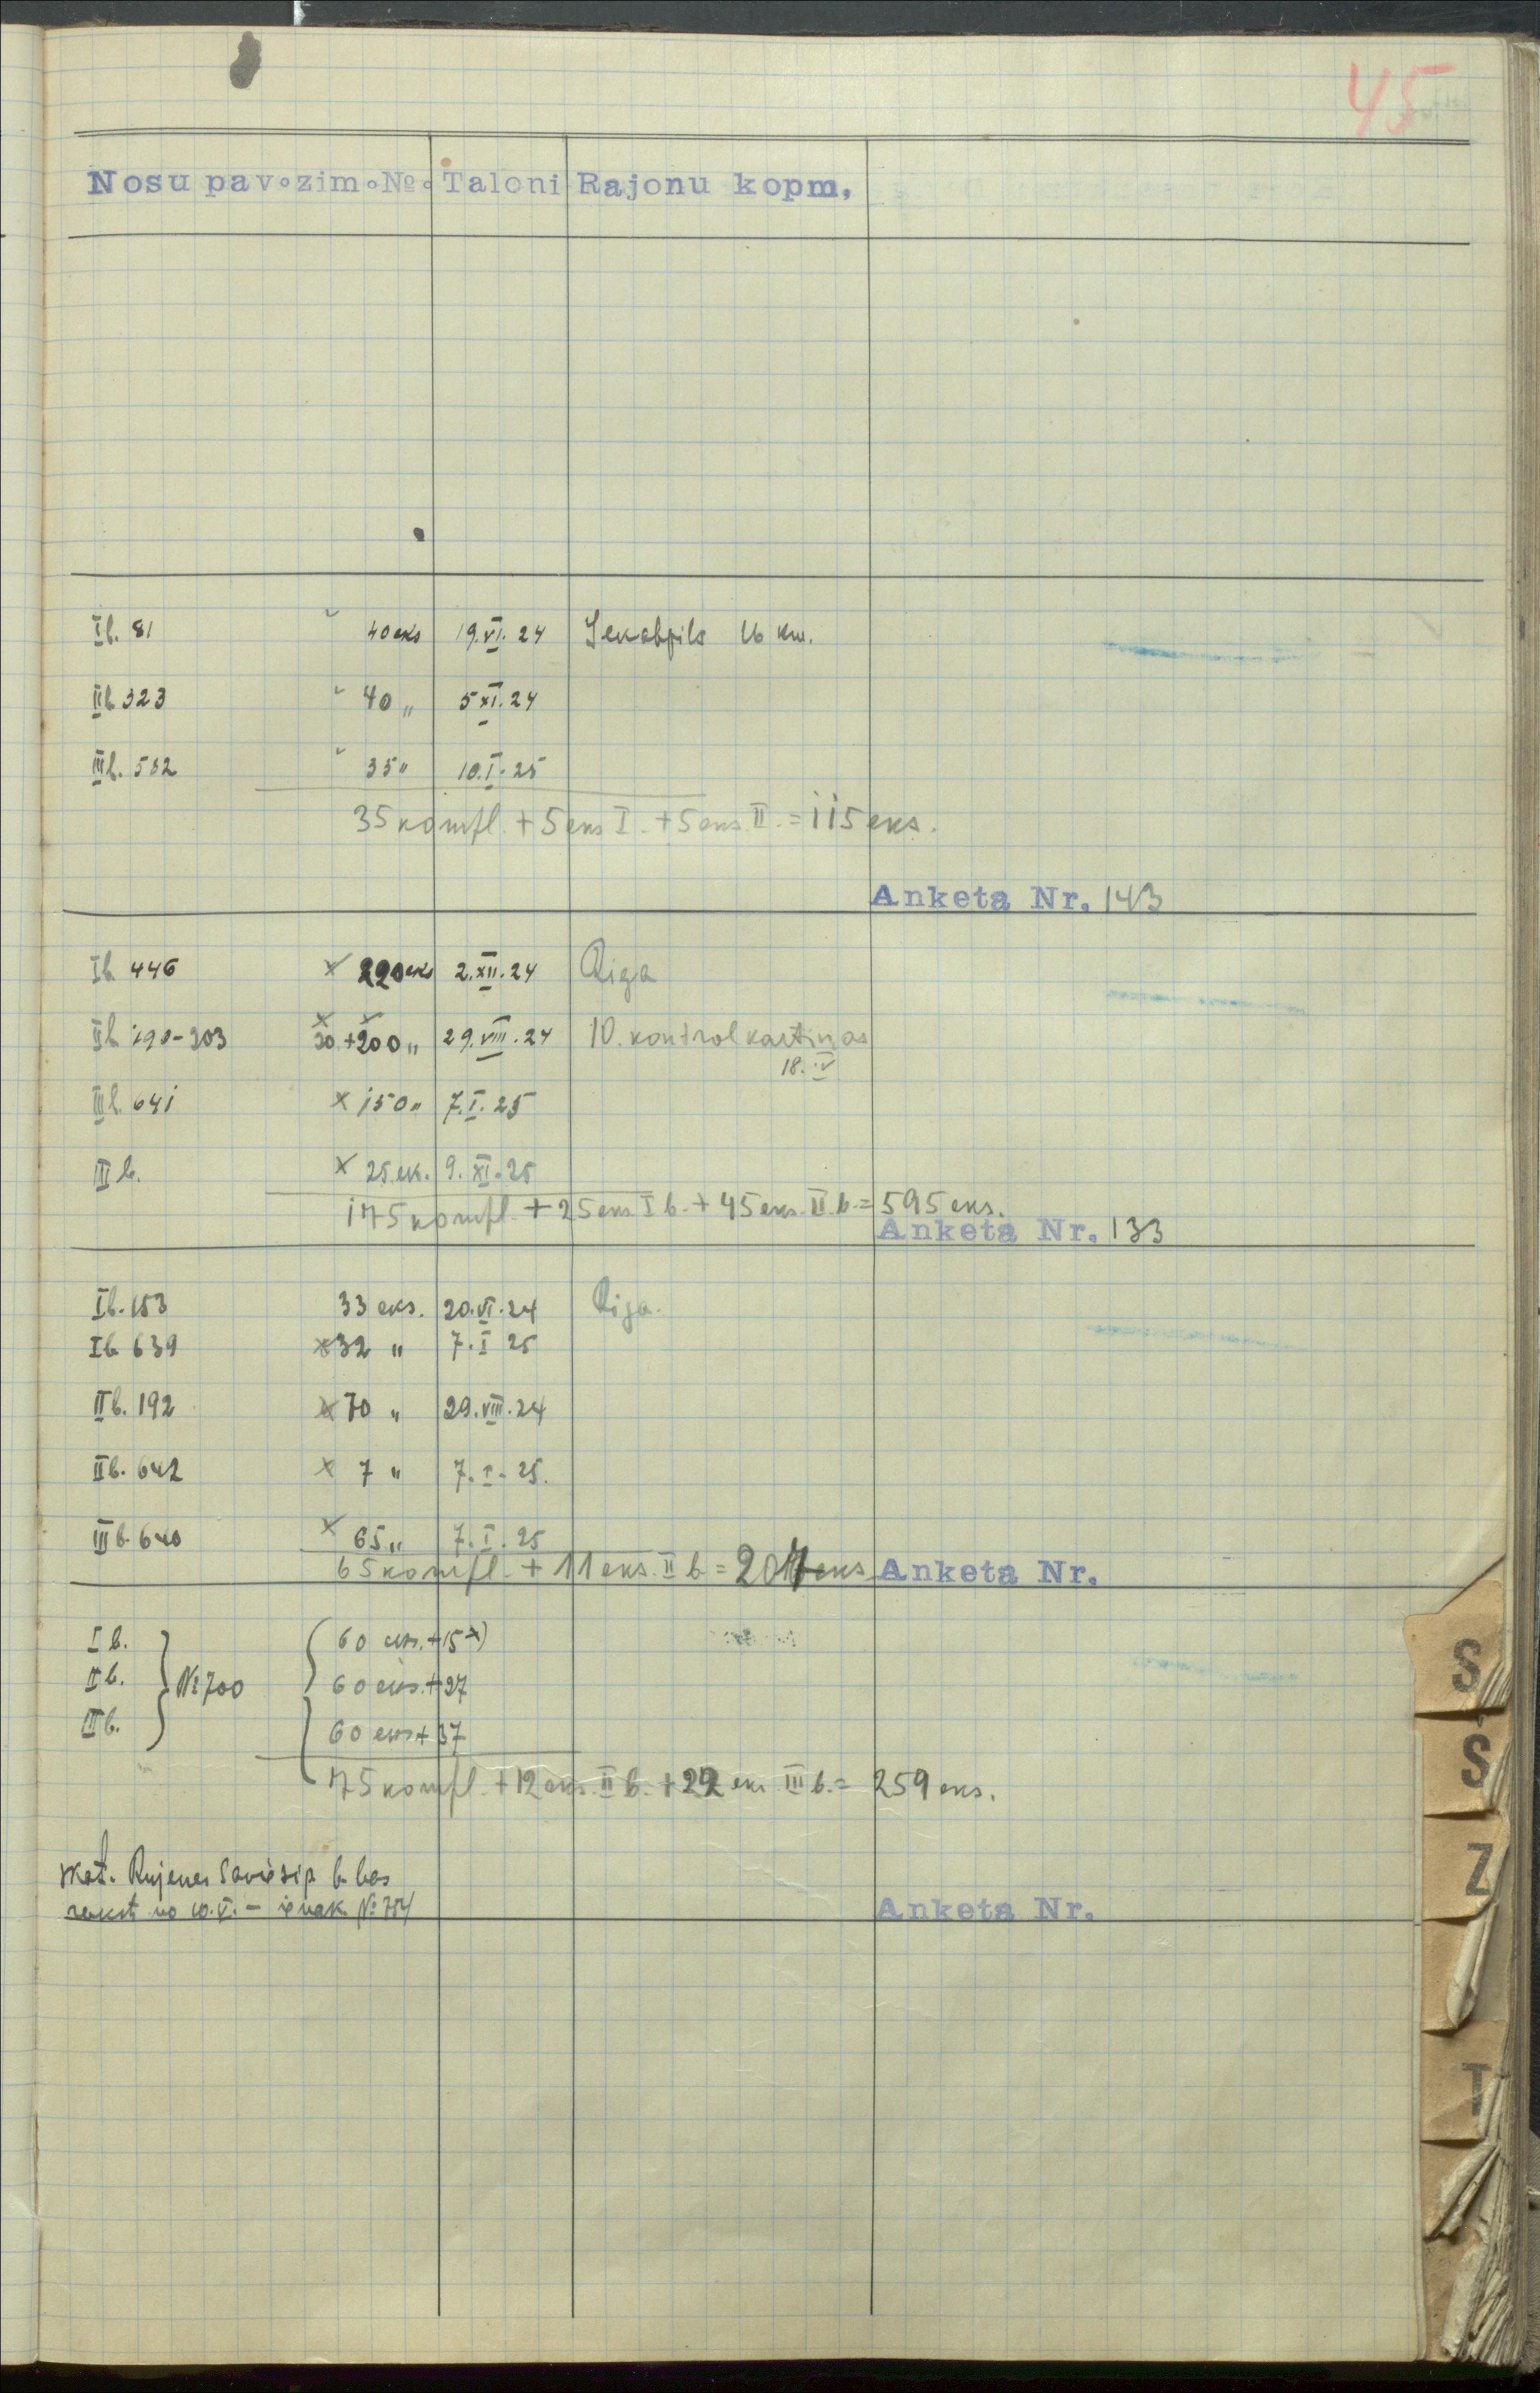 45
Nosu pav. zim. №. Taloni Rajonu kopm,
I b. 81 40 eks 19.VI.24 Jekabpils 16 km.
II b 323 40 „ 5 XI.24
III b. 532 35 „ 10.I.25
35 kompl. + 5 eks I. + 5 eks. II. = 115 eks.
Anketa Nr. 143
I b 446 x 220 eks 2.XII.24 Riga
II b 190-303 20 + 200 „ 29.VIII.24 10. kontrolkartiņas
18. IV
III b. 641 x 150 „ 7.I.25
III b. x 25 ek. 9.XI.25
175 kompl. + 25 eks I b. + 45 eks. II b. = 595 eks.
Anketa Nr. 133
I b. 153 33 eks. 20.VI.24 Riga.
I b 639 x 32 „ 7.I 25
II b. 192 x 70 „ 29.VIII.24
II b. 642 x 7 „ 7.I.25.
III b. 640 x 65 „ 7.I.25
65 kompl. + 11 eks. II b = 207 eks Anketa Nr.
I b. 60 eks. + 15 x)
II b. № 700 60 eks. + 27
III b. 60 eks + 37
75 kompl. + 12 eks. II b. + 22 eks III b. = 259 eks.
skat. Rujenes Saviesīp b-bas
rakst no 10.V. – ienak № 754 Anketa Nr.
S
Š
Z
T